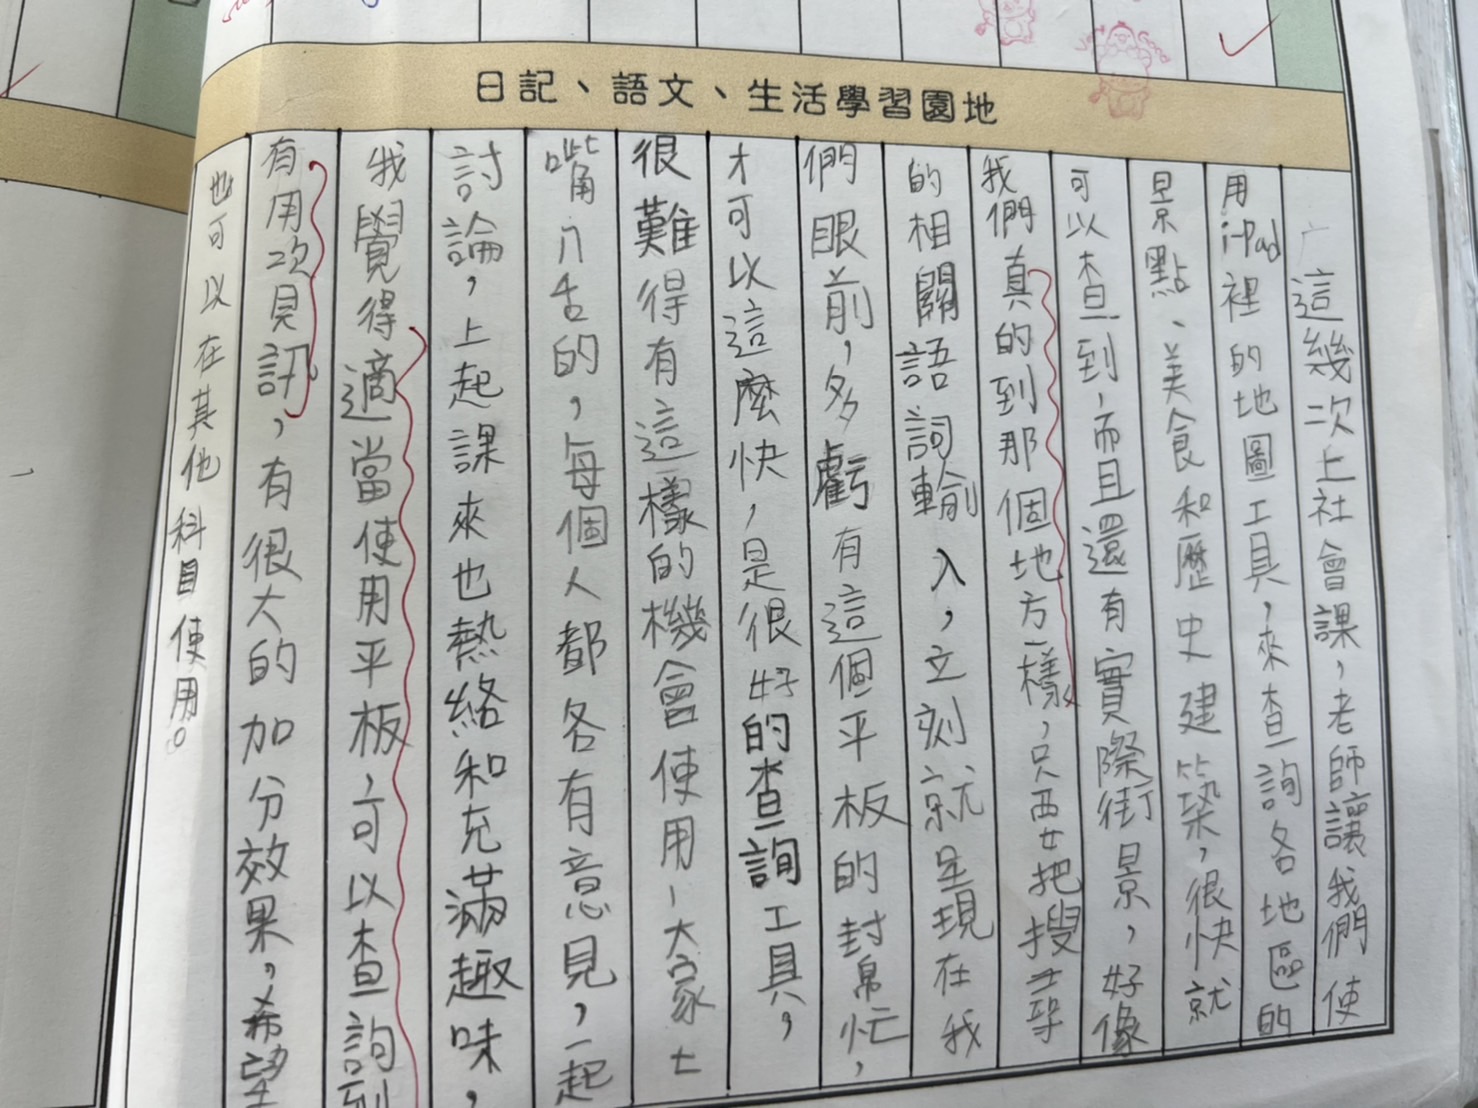 日記、語文、生活學習園地
這幾次上社會課，老師讓我們使
用iPad裡的地圖工具，來查詢各地區的
景點、美食和歷史建築，很快就
可以查到，而且還有實際街景，好像
我們真的到那個地方一樣，只要把搜尋
的相關語詞輸入，立刻就呈現在我
們眼前，多虧有這個平板的幫忙，
才可以這麼快，是很好的查詢工具，
很難得有這樣的機會使用，大家七
嘴八舌的，每個人都各有意見，一起
討論，上起課來也熱絡和充滿趣味，
我覺得適當使用平板，可以查詢到
有用次見訊，有很大的加分效果，希望
也可以在其他科目使用。